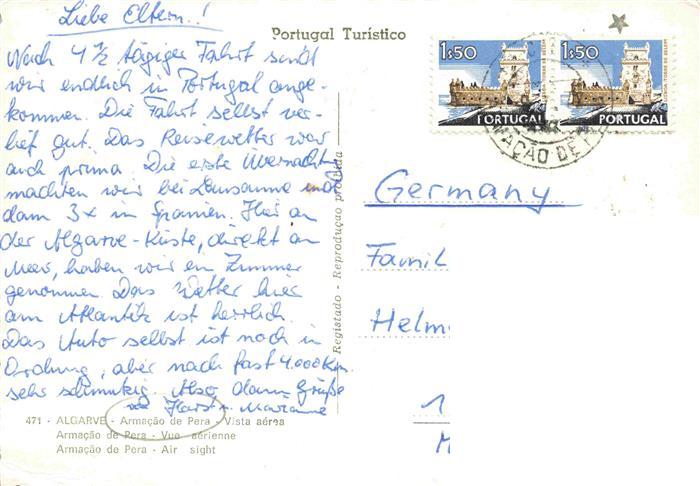 Liebe Eltern..!
Nach 4 ½ tägiger Fahrt sind
wir endlich in Portugal ange-
kommen. Die Fahrt selbst ver-
lief gut. Das Reisewetter war
auch prima. Die erste Übernacht.
machten wir bei Lausanne und
dann 3x in Spanien. Hier an
der Algarve-Küste, direkt am
Meer, haben wir ein Zimmer
genommen. Das Wetter hier
am Atlantik ist herrlich.
Das Auto selbst ist noch in
Ordnung, aber nach fast 4.000 Km.
sehr schmutzig. Also dann Grüße
Horst u. Marianne
471 - ALGARVE - Armação de Pera - Vista aérea
Armação de Pera - Vue aérienne
Armação de Pera - Air sight
Portugal Turístico
Registado - Reprodução proibida
1$50
PORTUGAL
1$50
PORTUGAL
MAÇÃO DE P
Germany
Famil
Helm
1